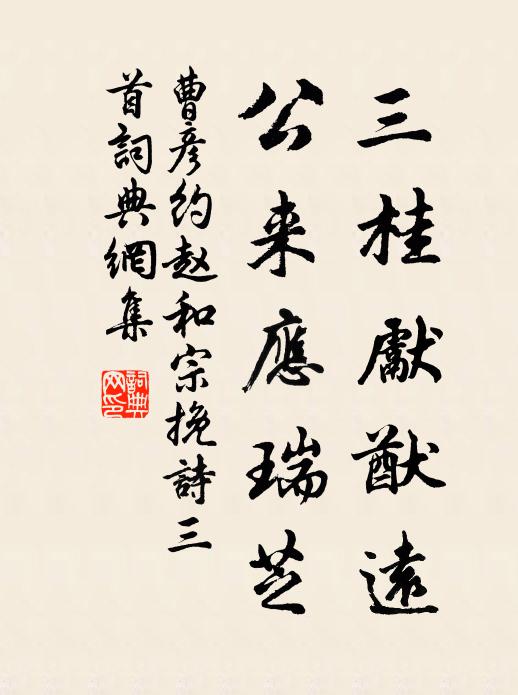 三桂獻猷遠
公来應瑞芝
曹彦约赵和宗挽詩三
首詞典網集
詞典
网印